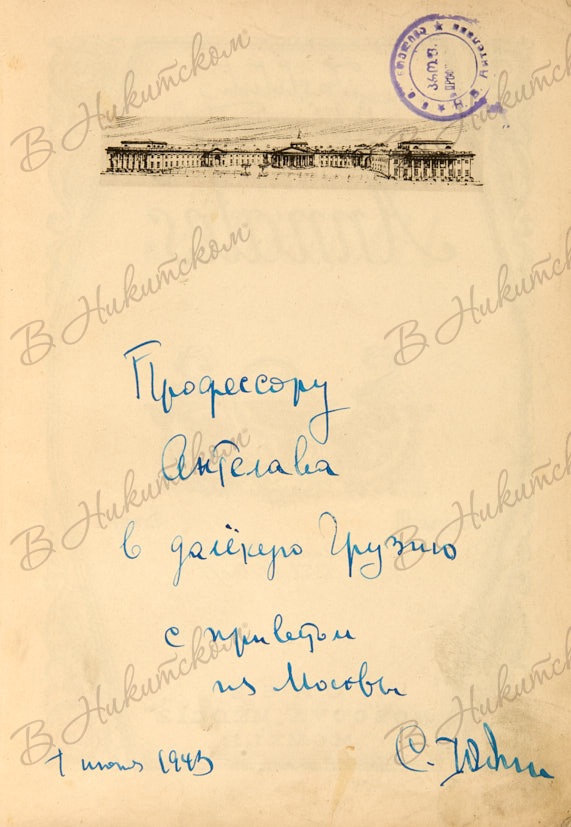 Профессору
Антелава
в далёкую Грузию
с приветом
из Москвы
С. Юдин
1943
В Никитском
В Никитском
В Никитском
В Никитском
В Никитском
В Никитском
В Никитском
В Никитском